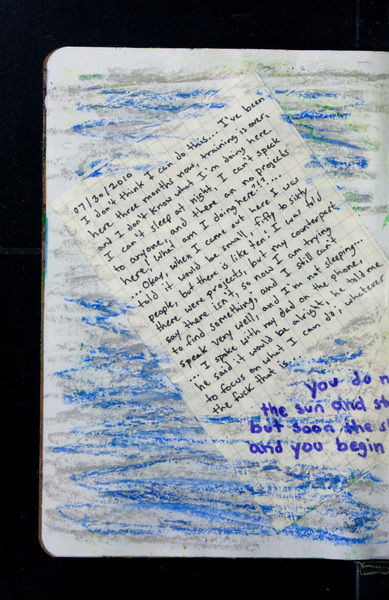 07/30/2010
I don't think I can do this... I've been
here three months now, training is over,
and I don't know what I'm doing here.
I can't sleep at night, I can't speak
to anyone, and there are no projects
here, what am I doing here!?...
... Okay, when I came out here I was
told it would be small, fifty to sixty
people, but there is like ten, I was told
there were projects, but my counterpart
say there isn't, so now I am trying
to find something, and I still can't
speak very well, and I'm not sleeping...
... I spoke with my dad on the phone,
he said it would be alright, he told me
to focus on what I can do, whatever
the fuck that is...
you do n
the sun and st
but soon the s
and you begin